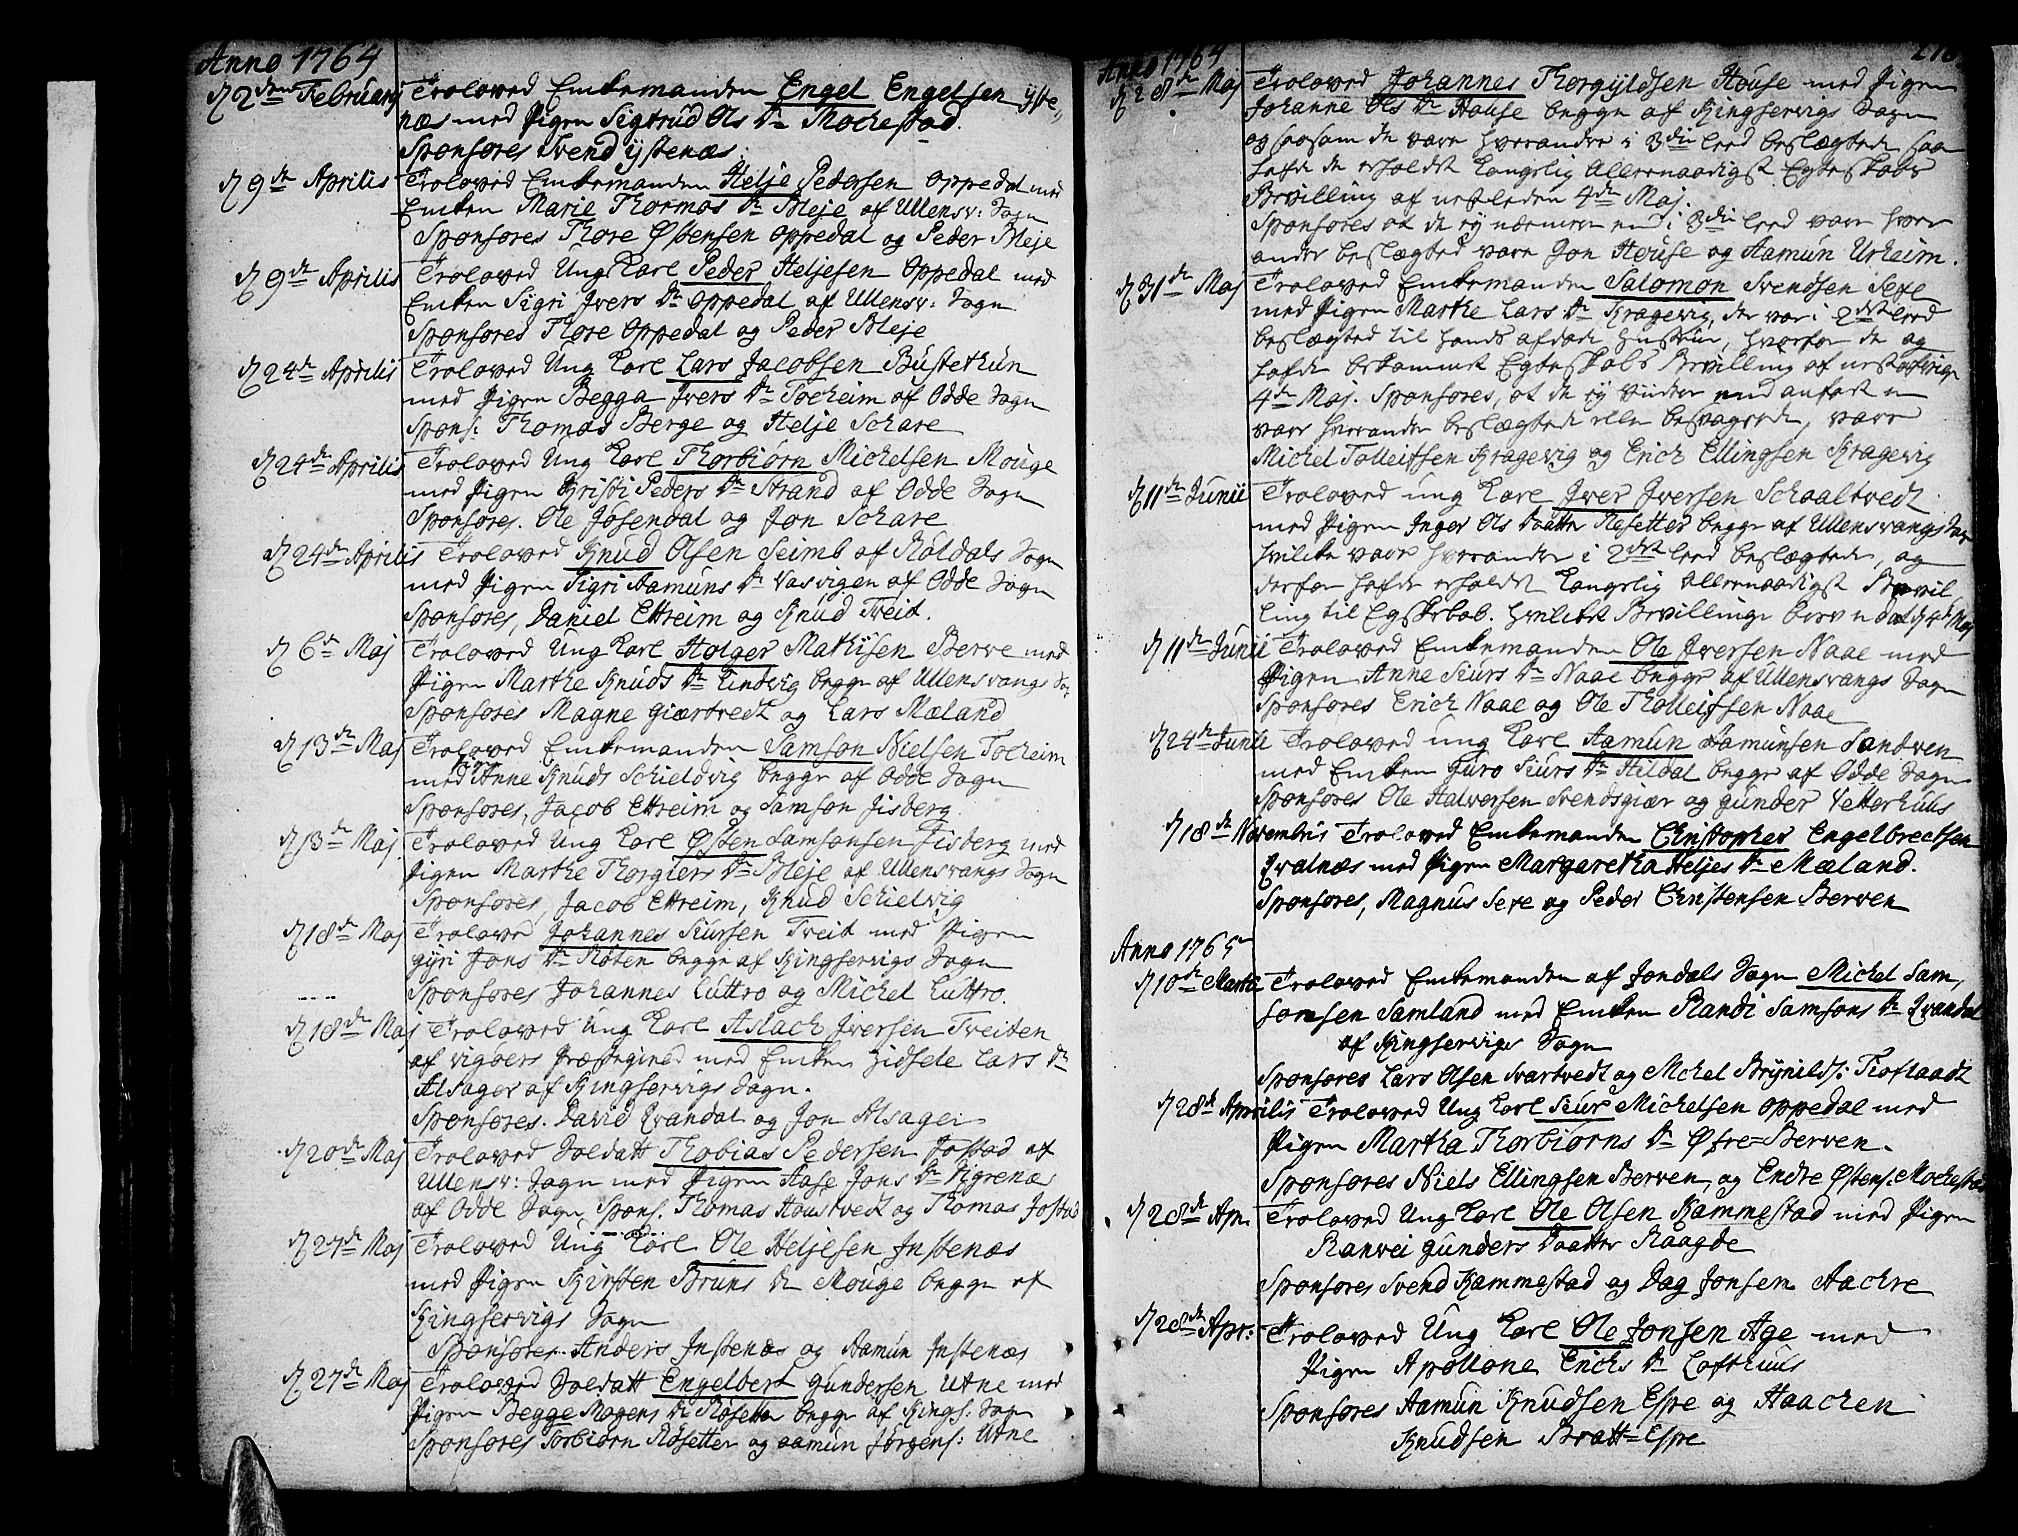 Anno 1764
d 2den Februarij Troloved Enkemanden Engel Engelsen yste,,
næs med Pigen Sigtrud Ols Dr Mochestad.
Sponsores Svend ystenæs.
d 9de Aprilis Troloved Enkemanden Helje Pedersen Oppedal med
Enken Marie Thormos Dr Bleje af Ullensv: Sogn
Sponsores Thore Østensen oppedal og Peder Bleje
d 9de Aprilis Troloved Ung Karl Peder Heljesen Oppedal med
Enken Sigri Ivers Dr oppedal af Ullensv: Sogn
Sponsores Thore Oppedal og Peder Bleje
d 24de Aprilis Troloved Ung Karl Lars Jacobsen Bustethun
med Pigen Begga Ivers Dr Tocheim af Odde Sogn
Spons: Thomas Berge og Helje Schare
d 24de Aprilis Troloved Ung Karl Thorbiørn Michelsen Mouge
med Pigen Kristi Peders Dr Strand af Odde Sogn
Sponsores. Ole Josendal og Jon Schare
d 24de Aprilis Troloved Knud Olsen Seimb af Røldals Sogn
med Pigen Sigri Aamuns Dr Vasvigen af Odde Sogn
Sponsores, Daniel Ettreim og Knud Treit.
d 6de Maj Troloved Ung Karl Holger Mathisen Berve med
Pigen Marthe Knuds Dr Lindvig begge af Ullensvangs So
Sponsores Magne Giærtvedt og Lars Mæland
d 13de Maj Troloved Enkemanden Samson Nielsen Tocheim
med Pigen Anne Knuds Schieldvig begge af Odde Sogn
Sponsores, Jacob Ettreim og Samson Jisberg
d 13de Maj Troloved Ung Karl Østen Samsonsen Jisberg med
Pigen Marthe Thorgiers Dr Bleje af Ullensvangs Sogn
Sponsores, Jacob Ettreim, Knud Schielvig
d 18de Maj Trolove Johannes Siursen Treit med Pigen
gyri Jons Dr Røten begge af Kingservigs Sogn
Sponsores Johannes Luttro og Michel Luttro.
d 18de Maj Troloved Ung Karl Aslach Iversen Treiten
af vigøers Præstegined med Enken Zidsele Lars Dr
Alsager af Kingservigs Sogn.
Sponsores. David Qvandal og Jon Alsager
d 20de Maj Troloved Soldatt Thobias Pedersen Jostad af
Ullensv: Sogn med Pigen Aase Jons Dr Digrenæs
af Odde Sogn Spons. Thomas Houstvedt og Thomas Jostad
d 27de Maj Troloved Ung Karl Ole Heljesen Instenæs
med Pigen Kirsten Bruns Dr Mouge begge af
Kingservigs Sogn
Sponsores. Anders Instenæs og Aamun Instenæs
d 27de Maj Troloved Soldatt Engelbert Gundersen Utne med
Pigen Begge Mogens Dr Røsetter begge af Kings: Sogn
Sponsores Torbiørn Røsetter og aamun Jørgens: Utne
Anno 1764
d 28de Maj Troloved Johannes Thorgyldsen House med Pigen
Johanne Ols Dr House begge af Kingservigs Sogn
og saasom de vare hverandre i 3die leed beslægtede saa
hafde de erholdt Kongelig Allernaadigst Egteskabs
Bevilling af nestleden 4de Maj.
Sponsores at de ey nærmere end i 3die leed vare hver
andre beslægted vare Jon House og Aamun Urheim.
d 31de Maj Troloved Enkemanden Salomon Svendsen Sexe
med Pigen Marthe Lars Dr Kragevig, der var i 2det leed
beslægted til hands afdøde Hustrue, hvorfor de og
hafde bekommet Egteskabs Bevilling af nestafvigte
4de Maj. Sponsores, at de ey viidere end anført er
vare hverandre beslægtede eller besvogrede, vare
Michel Tolleifsen Kragevig og Erich Ellingsen Kragevig
d 11de Junii Troloved ung Karl Iver Iversen Schaaltvedt
med Pigen Inger Ols Daatter Resetter begge af Ullensvangs Sogn
hvilke vare hverandre i 2det leed beslægtede, og
derfor hafde erholdet Kongelig Allernaadigst Bevil
ling til Egteskab. hvilket Bevillings brev er dat d 4de Maj
d 11de Junii Troloved Enkemanden Ole Iversen Naae med
Pigen Anne Siurs Dr Naae begge af Ullensvangs Sogn
Sponsores Erich Naae og Ole Tholleifsen Naae
d 24de Junii Troloved ung Karl Aamun Aamunsen Sandven
med Enken Guro Siurs Dr Hildal begge af Odde Sogn
Sponsores Ole Halversen Svendsgiær og gunder Vetterhuus
d 18de Novembris Troloved Enkemanden Christopher Engelbrectsen
Qvalnæs med Pigen Margaretha Heljes Dr Mæland.
Sponsores, Magnus Sexe og Peder Christensen Berven
Anno 1765
d 10de Martii Troloved Enkemanden af Jondals Sogn Michel Sam,
sonsen Samland med Enken Randi Samsons Dr Qvandal
af Kingservigs Sogn
Sponsores Lars Olsen Svartvedt og Michel Brynilds: Tioflaadt
d 28de Aprilis Troloved Ung Karl Siur Michelsen Oppedal med
Pigen Martha Thorbiørns Dr Øfre=Berven.
Sponsores Niels Ellingsen Berven og Endre Østens: Mochestad
d 28de Apr. Troloved Ung Karl Ole Olsen Hammestad med Pigen
Ranvei gunders Daatter Raagde
Sponsores Svend Hammestad og Dag Jonsen Aachre
d 28de Apr: Troloved Ung Karl Ole Jonsen Age med
Pigen Apollone Erichs Dr Lofthuus
Sponsores Aamun Knudsen Espe og Haachen
Knudsen Bratt=Espe